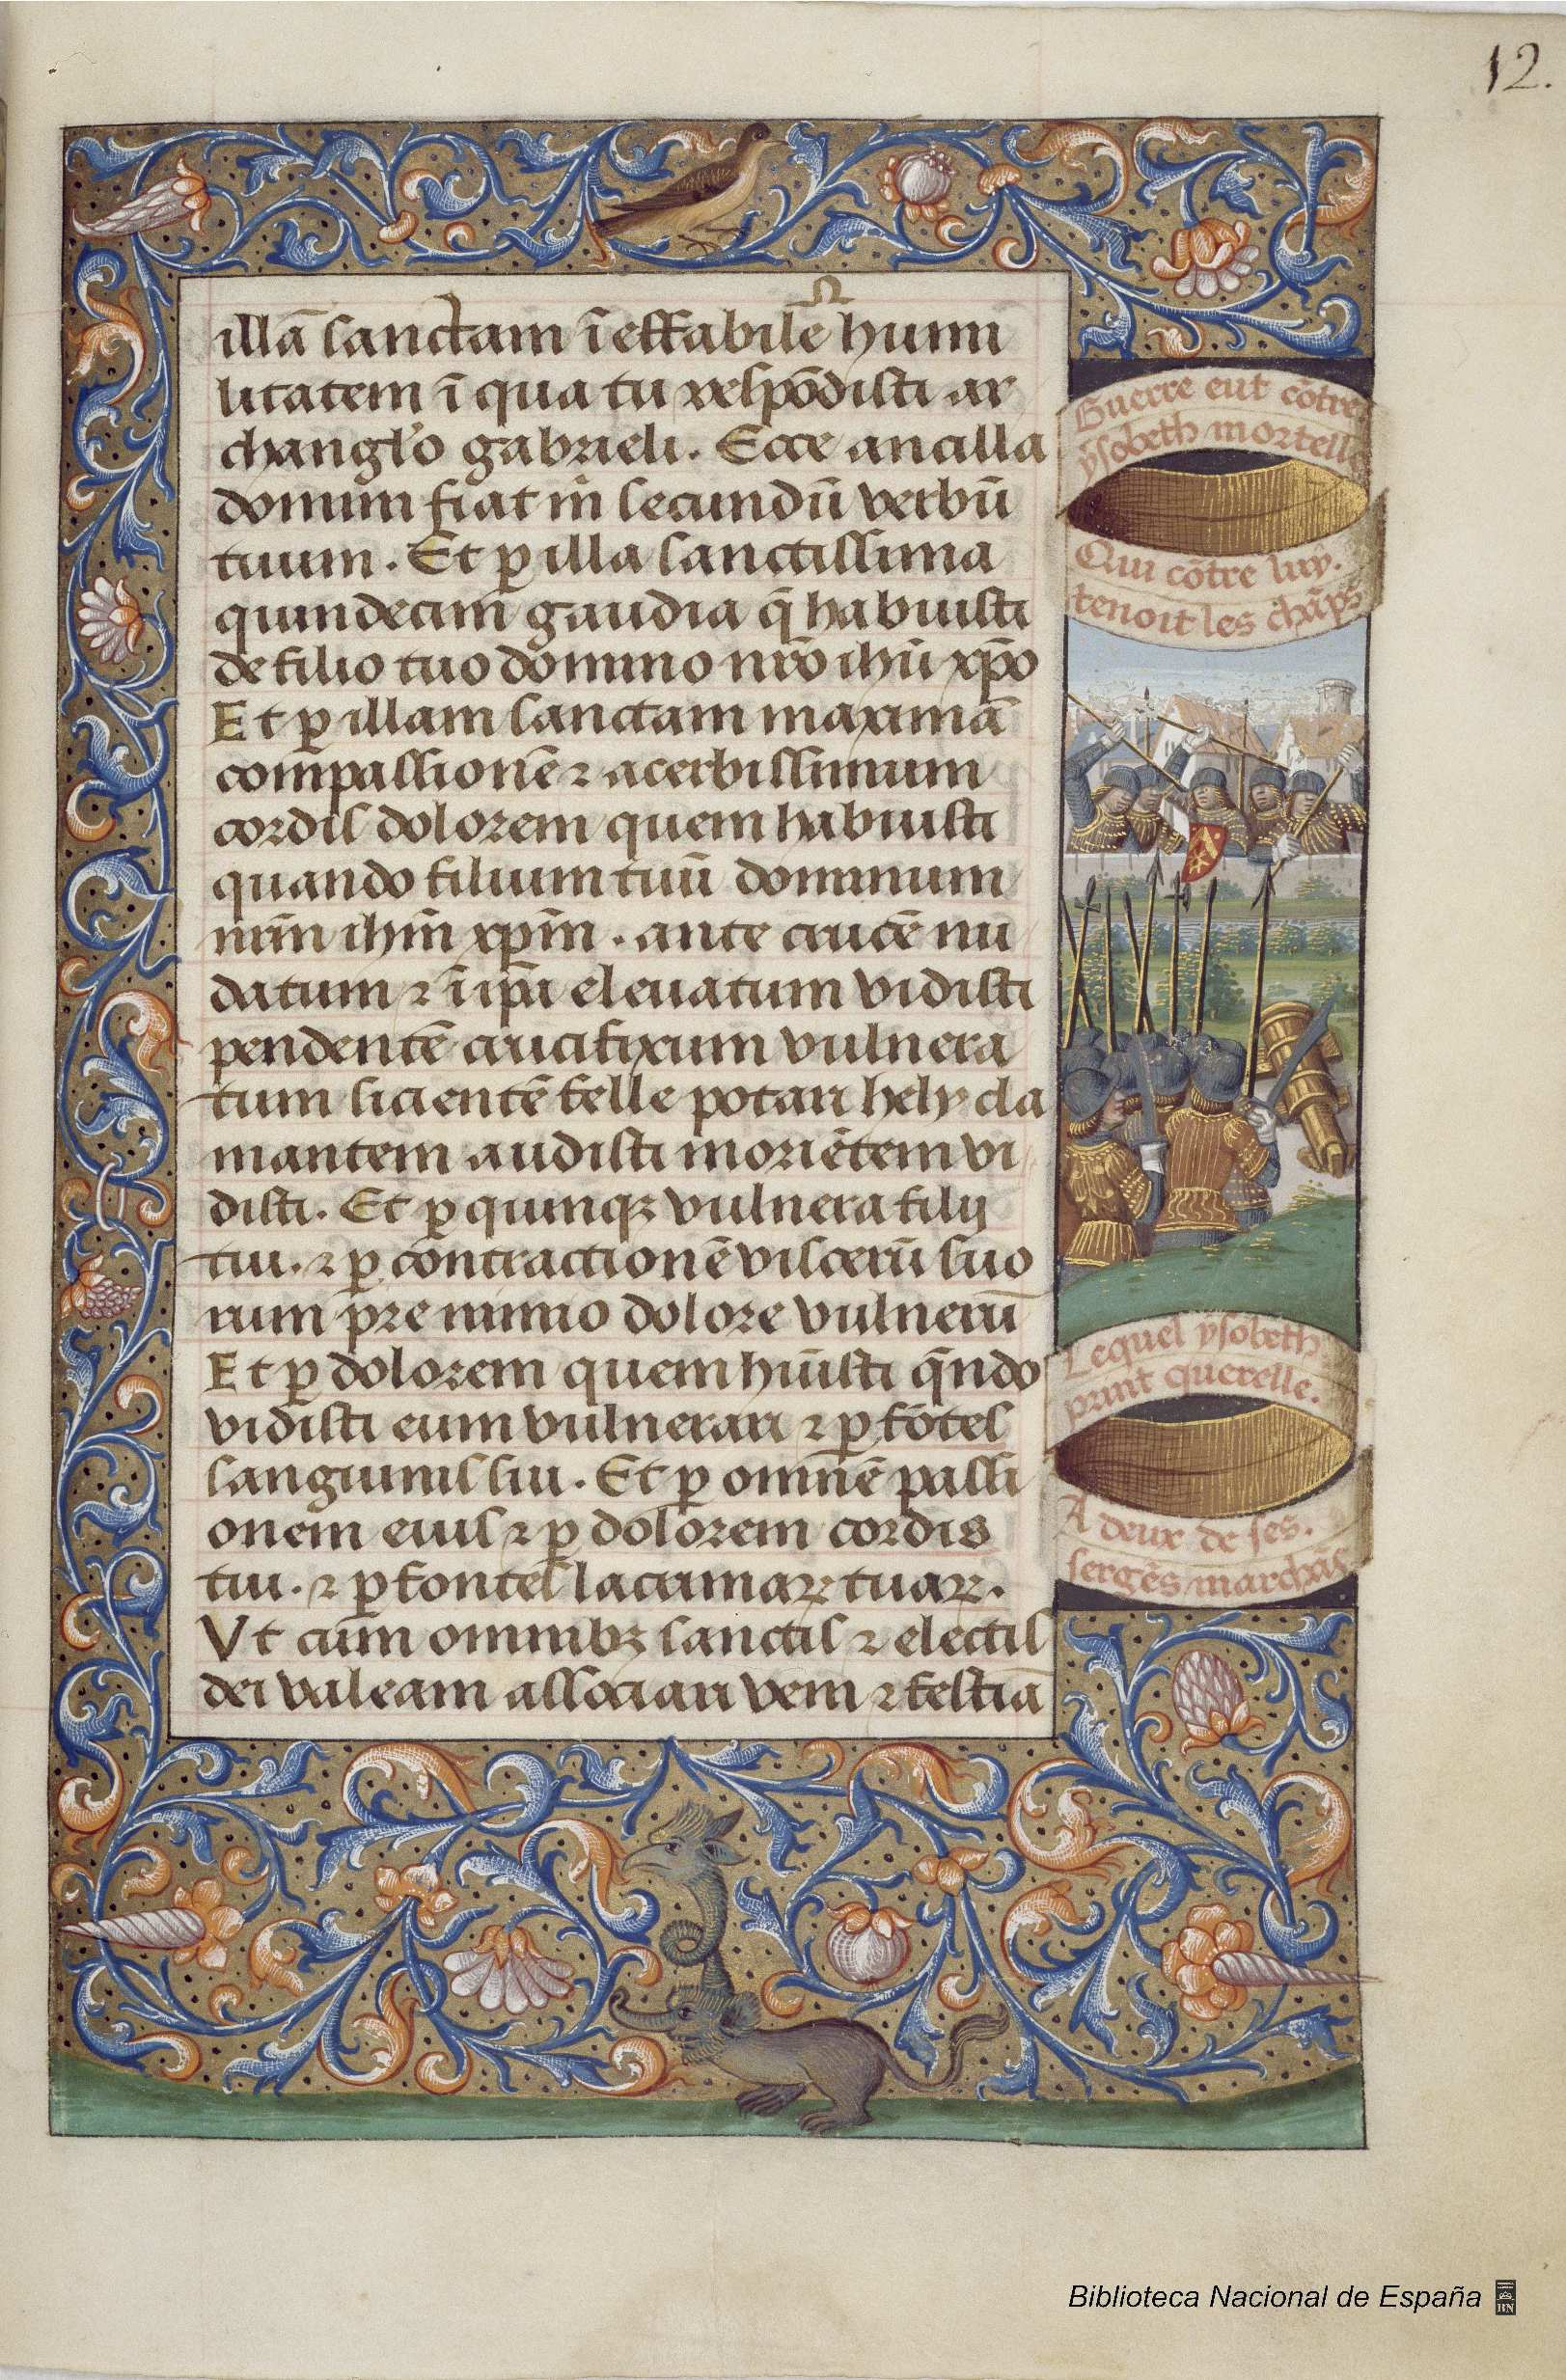 12.
illā sanctam ĩeffabilē humi
litatem ĩ qua tu respōdisti ar
changł'o gabrieli. Ecce ancilla
domini fiat m̄ secundū verbū
tuum. Et ꝑ illa sanctissima
quindecim gaudia q̄ habuisti
de filio tuo domino nr̄o ihū xp̄o
Et ꝑ illam sanctam maximā
compassionē ⁊ acerbissimum
cordis dolorem quem habuisti
quando filium tuū dominum
nr̄m ihm̄ xp̄m. ante crucē nu
datum ⁊ ĩ ip̄a eleuatum vidisti
pendentē crucifixum vulnera
tum sicientē felle potari hely cla
mantem audisti moriētem vi
disti. Et ꝑ quinqꝫ vulnera filij
tui. ⁊ ꝑ contractionē viscerū suo
rum pre nimio dolore vulnerū
Et ꝑ dolorem quem hūisti qn̄do
vidisti eum vulnerari ⁊ ꝑ fōtes
sanguinis sui. Et ꝑ omnē passi
onem eius ⁊ ꝑ dolorem cordis
tui. ⁊ ꝑ fontes lacrimaꝝ tuaꝝ.
Vt cum omnibꝫ sanctis ⁊ electis
dei valeam associari veni ⁊ festiā
Guerre eut cōtre
ysobeth mortelle
Qui cōtre luy.
tenoit les chāps
Lequel ysobeth
print querelle.
A deux de ses.
sergēs marchās
Biblioteca Nacional de España
BN